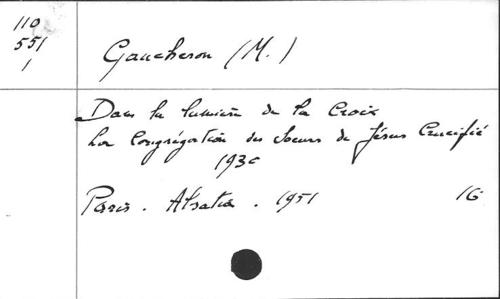 110
551
1
Gaucheron (M.)
Dans la lumière de la Croix
La Congrégation des Soeurs de Jésus Crucifié
193c
Paris. Alsatia. 1951 16